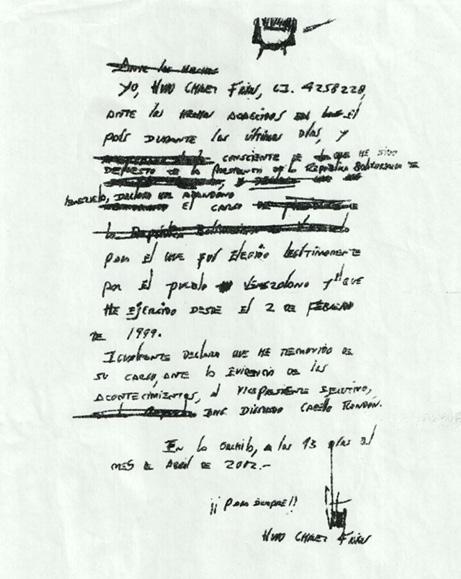 Ante los hechos
Yo, Hugo Chavez Frías, C.I. 4258228,
ante los hechos acaecidos en el
país durante los últimos días, y
consciente de que he sido
depuesto de la Presidencia de la República Bolivariana de
Venezuela, declaro que abandono
el cargo de
la República Bolivariana de Venezuela
para el que fui elegido legítimamente
por el pueblo Venezolano y el que
he ejercido desde el 2 de febrero
de 1999.
Igualmente declaro que he removido de
su cargo, ante la evidencia de los
acontecimientos, al Vicepresidente Ejecutivo,
Ing. Diosdado Cabello Rondón.
En la Orchila, a los 13 días del
mes de Abril de 2002.-
¡¡Para siempre!!
Hugo Chavez Frías